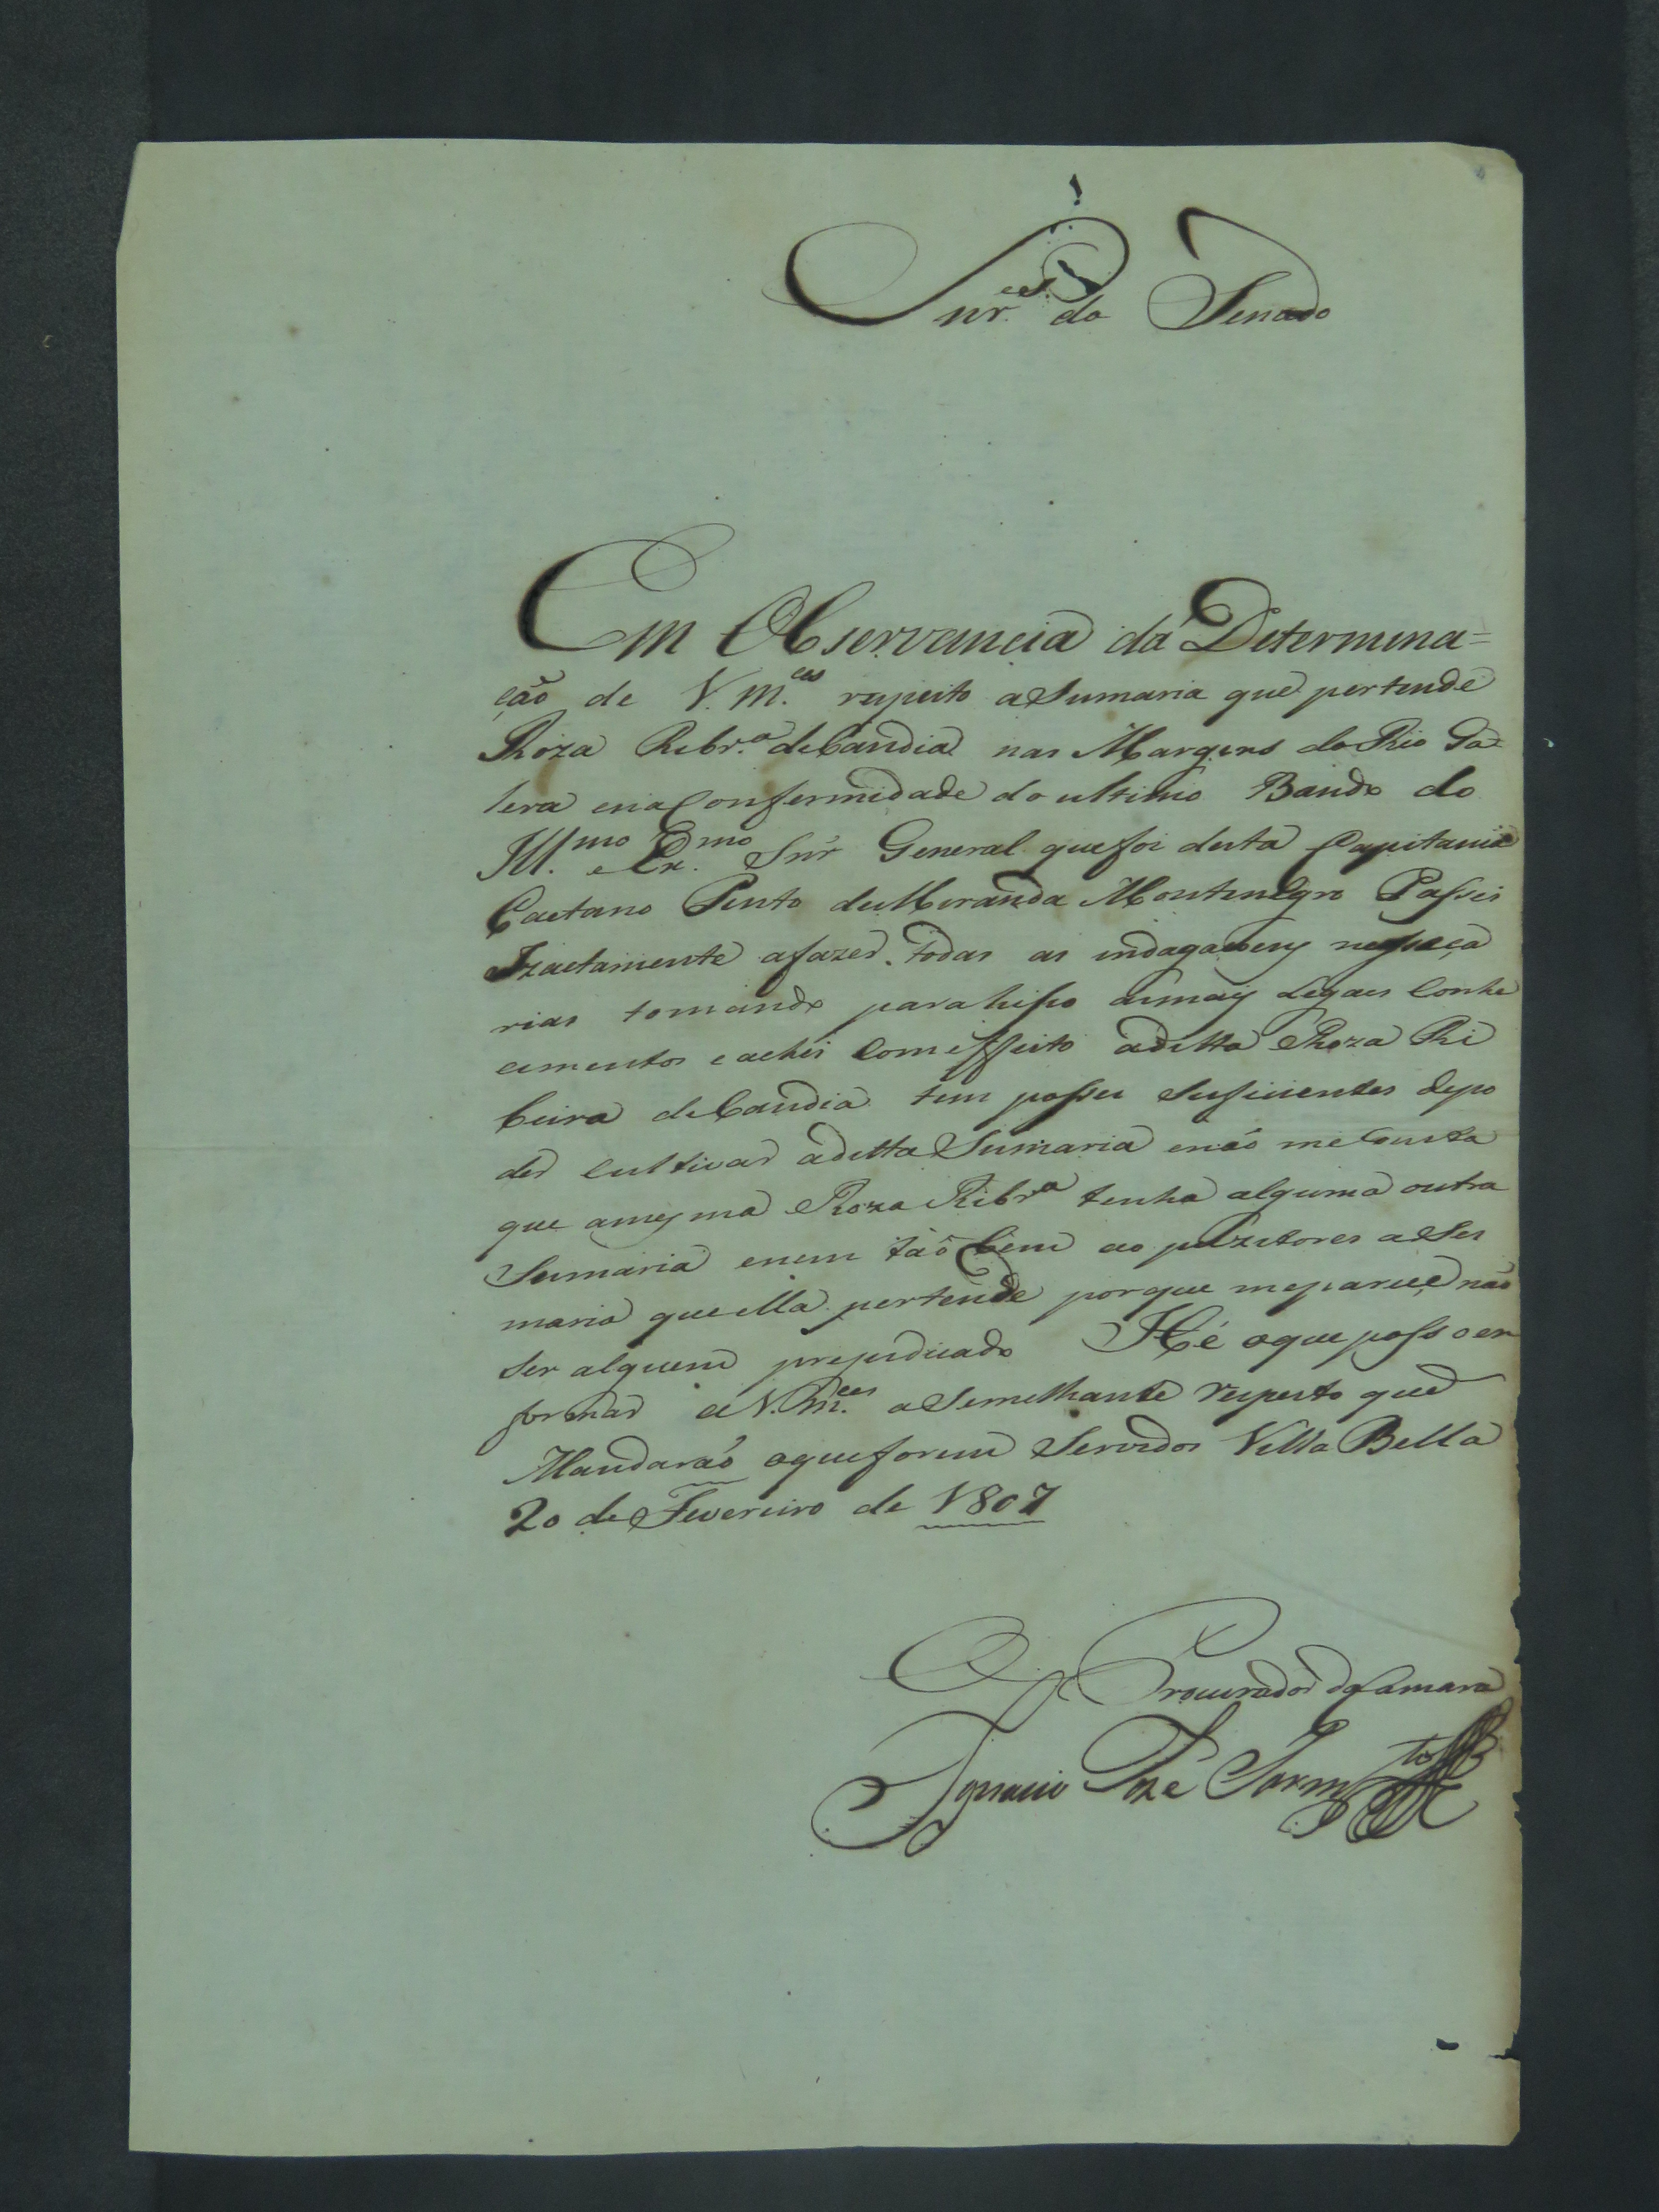 Snr.es do Senado
Em Observancia da Determina=
ção de V. M.ces respeito a Sumaria que pertende
Roza Ribr.ª de Candia nas Margens do Rio Ga=
lera ena Confermidade do ultimo Bando do
Ill.mo e Ex.mo Snr General que foi desta Capitania
Caetano Pinto de Miranda Montenegro Passei
Izactamente afazer todas as indagacoens neseça
rias tomando para hisso asmais Legaes Conhe
cimentos e achei Com effeito aditta Roza Ri
beira de Candia tem posses Suficientes depo
der cultivar aditta Sumaria enaõ me Consta
que amesma Roza Ribrª tenha alguma outra
Sumaria enem taõ bem ao puzitores a Ses
maria que ella pertende porque me parece naõ
ser alguem prejudicado Hé oque posso en
formar a V. M.ces a Semelhante respeito que
Mandaraõ oque forem Servidos Villa Bella
20 de Fevereiro de 1807
O Procurador da Camara
Ignacio Joze Sarmto